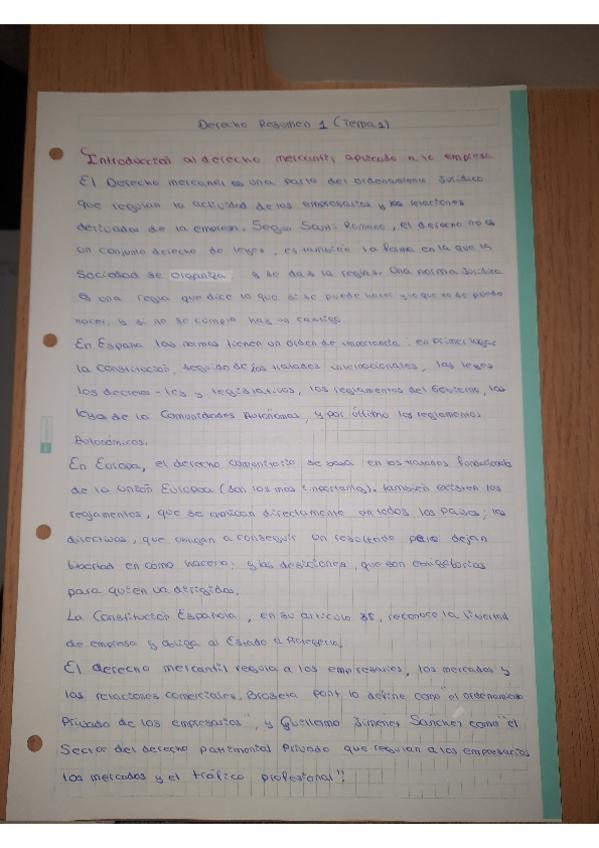 Derecho Resumen 1 (Tema 1)
Introducción al derecho mercantil aplicado a la empresa
El Derecho mercantil es una parte del ordenamiento Jurídico
que regulan la actividad de los empresarios y las relaciones
derivadas de la empresa. Según Santi Romano, el derecho no es
un conjunto derecho de leyes, es también la forma en la que la
Sociedad se organiza y se da la reglas. Una norma Jurídica
es una regla que dice lo que si se puede hacer y lo que no se puede
hacer, y si no se cumple hay un castigo.
En España las normas tienen un orden de importancia: en primer lugar
la Constitución, seguido de los tratados internacionales, las leyes
los decretos-ley y legislativos, los reglamentos del Gobierno, las
leyes de la Comunidades Autónomas, y por último los reglamentos
Autonómicos.
En Europa, el derecho comunitario se basa en los tratados fundacionales
de la Unión Europea (son los más importantes). también existen los
reglamentos, que se aplican directamente en todos los países; las
directivas, que obligan a conseguir un resultado pero dejan
libertad en como hacerlo; y las desiciones, que son obligatorias
para quien va dirigidas.
La Constitución Española, en su artículo 38, reconoce la libertad
de empresa y obliga al Estado a Protegerla.
El derecho mercantil regula a los empresarios, los mercados y
las relaciones comerciales. Broseta Pont lo define como "el ordenamiento
Privado de los empresarios", y Guillermo Jimenez Sánchez como "el
Sector del derecho patrimonial Privado que regulan a los empresarios
los mercados y el tráfico profesional".